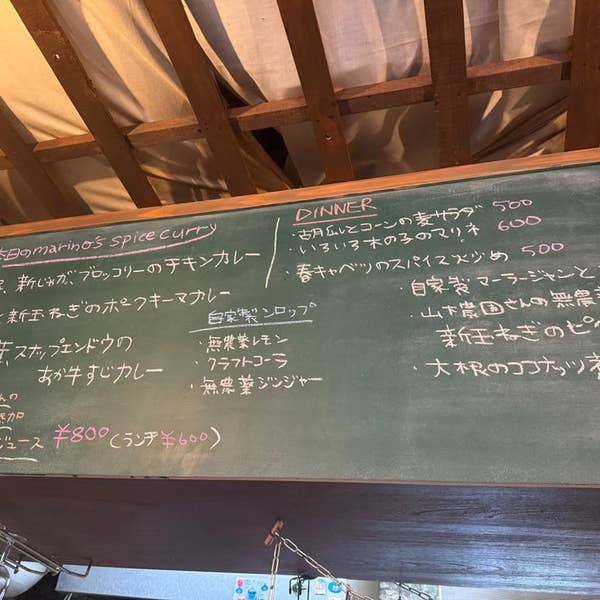 本日のmarino's spice curry
新じゃが、ブロッコリーのチキンカレー
新玉ねぎのポークキーマカレー
スナップエンドウの
あか牛すじカレー
ジュース ¥800 (ランチ¥600)
自家製シロップ
・無農薬レモン
・クラフトコーラ
・無農薬ジンジャー
DINNER
・胡瓜とコーンの麦サラダ 500
・いろいろ木の子のマリネ 600
・春キャベツのスパイス炒め 500
・自家製 マーラージャンと
・山下農園さんの無農薬
新玉ねぎのピ
・大根のココナッツ